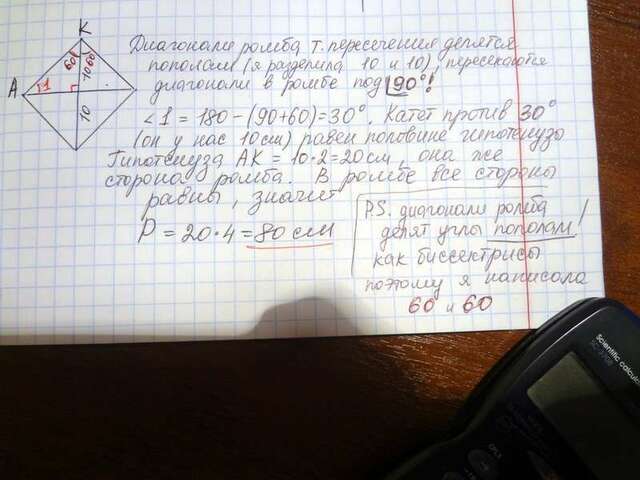 K
60 10 60
A 1
10
Диагонали ромба т. пересечения делятся
пополам (я разделила 10 и 10), пересекаются
диагонали в ромбе под 90°!
∠1 = 180 - (90+60) = 30°. Катет против 30°
(он у нас 10 см) равен половине гипотенузы
Гипотенуза АК = 10·2=20см, она же
сторона ромба. В ромбе все стороны
равны, значит
P = 20·4 = 80 см
P.S. диагонали ромба
делят углы пополам!
как биссектрисы
поэтому я написала
60 и 60
Scientific calcul